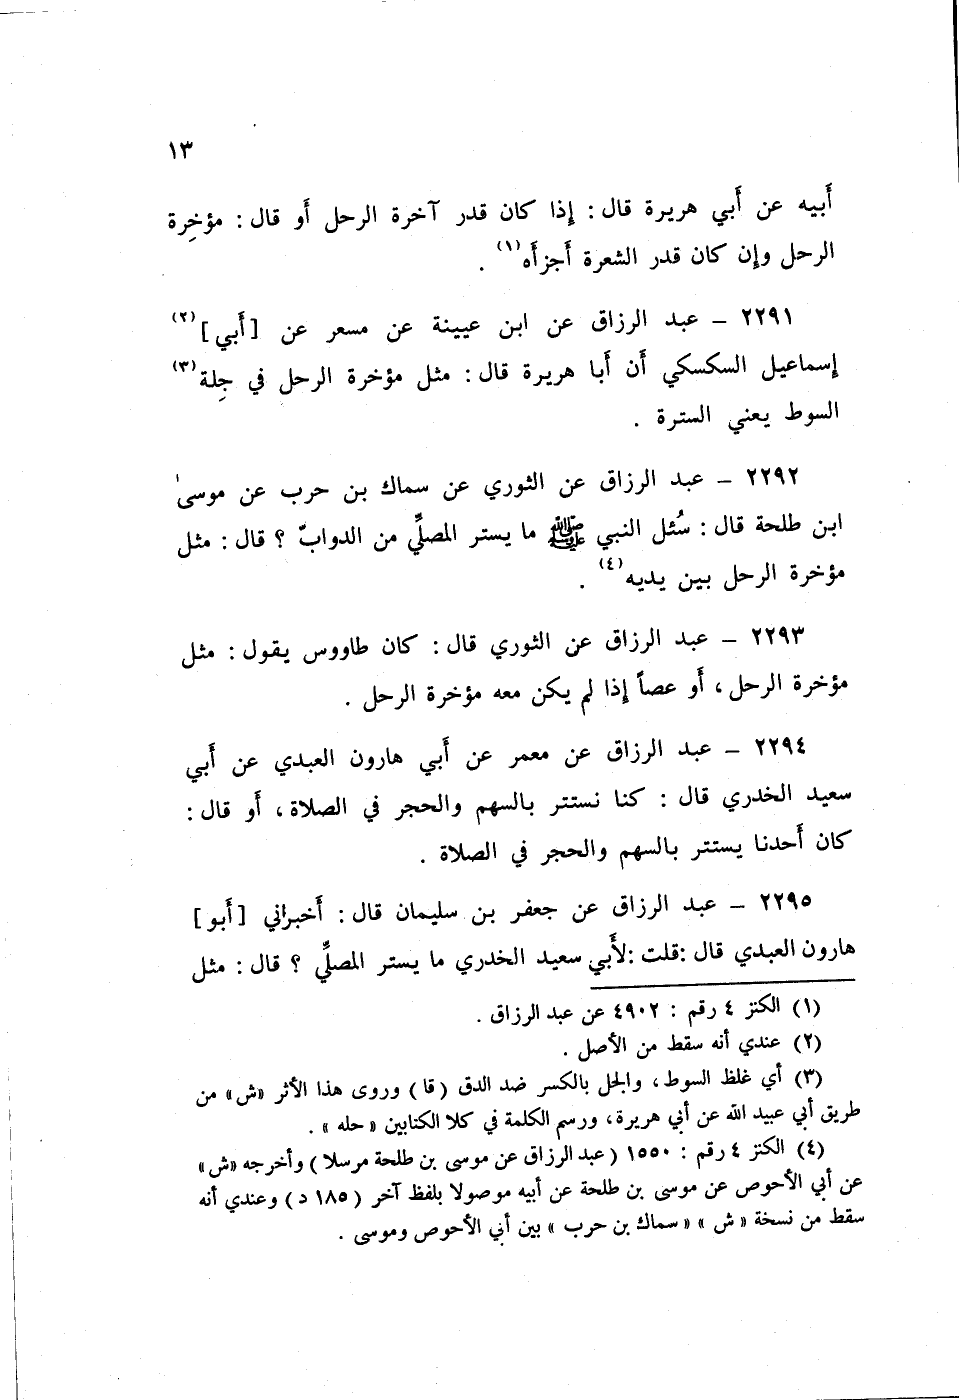 ١٣
أَبيه عن أَبي هريرة قال : إِذا كان قدر آخرة الرحل أَو قال : مؤخِرة
الرحل وإِن كان قدر الشعرة أَجزأَه(١) .
٢٢٩١ – عبد الرزاق عن ابن عيينة عن مسعر عن [أَبي](٢)
إِسماعيل السكسكي أَن أَبا هريرة قال : مثل مؤخرة الرحل في جِلة(٣)
السوط يعني السترة .
٢٢٩٢ – عبد الرزاق عن الثوري عن سماك بن حرب عن موسىٰ
ابن طلحة قال : سُئل النبي ﷺ ما يستر المصلِّي من الدوابّ ؟ قال : مثل
مؤخرة الرحل بين يديه(٤) .
٢٢٩٣ – عبد الرزاق عن الثوري قال : كان طاووس يقول : مثل
مؤخرة الرحل ، أَو عصاً إِذا لم يكن معه مؤخرة الرحل .
٢٢٩٤ – عبد الرزاق عن معمر عن أَبي هارون العبدي عن أَبي
سعيد الخدري قال : كنا نستتر بالسهم والحجر في الصلاة ، أَو قال :
كان أَحدنا يستتر بالسهم والحجر في الصلاة .
٢٢٩٥ – عبد الرزاق عن جعفر بن سليمان قال : أَخبراني [أَبو]
هارون العبدي قال :قلت :لأَبي سعيد الخدري ما يستر المصلِّي ؟ قال : مثل
(١) الكنز ٤ رقم : ٤٩٠٢ عن عبد الرزاق .
(٢) عندي أنه سقط من الأصل .
(٣) أي غلظ السوط ، والجل بالكسر ضد الدق ( قا ) وروى هذا الأثر «ش» من
طريق أبي عبيد الله عن أبي هريرة ، ورسم الكلمة في كلا الكتابين « حله » .
(٤) الكنز ٤ رقم : ١٥٥٠ ( عبد الرزاق عن موسى بن طلحة مرسلا ) وأخرجه «ش»
عن أبي الأحوص عن موسى بن طلحة عن أبيه موصولا بلفظ آخر ( ١٨٥ د ) وعندي أنه
سقط من نسخة « ش » « سماك بن حرب » بين أبي الأحوص وموسى .